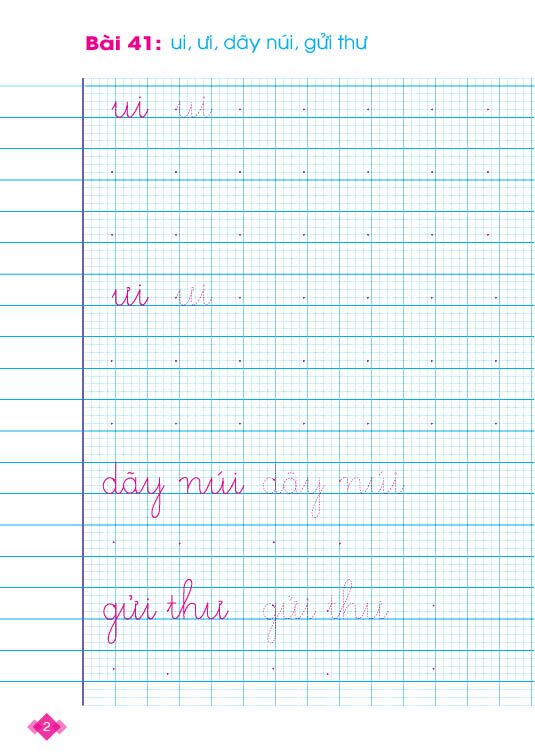 Bài 41: ui, ưi, dãy núi, gửi thư
ui ui
ưi ưi
dãy núi dãy núi
gửi thư gửi thư
2